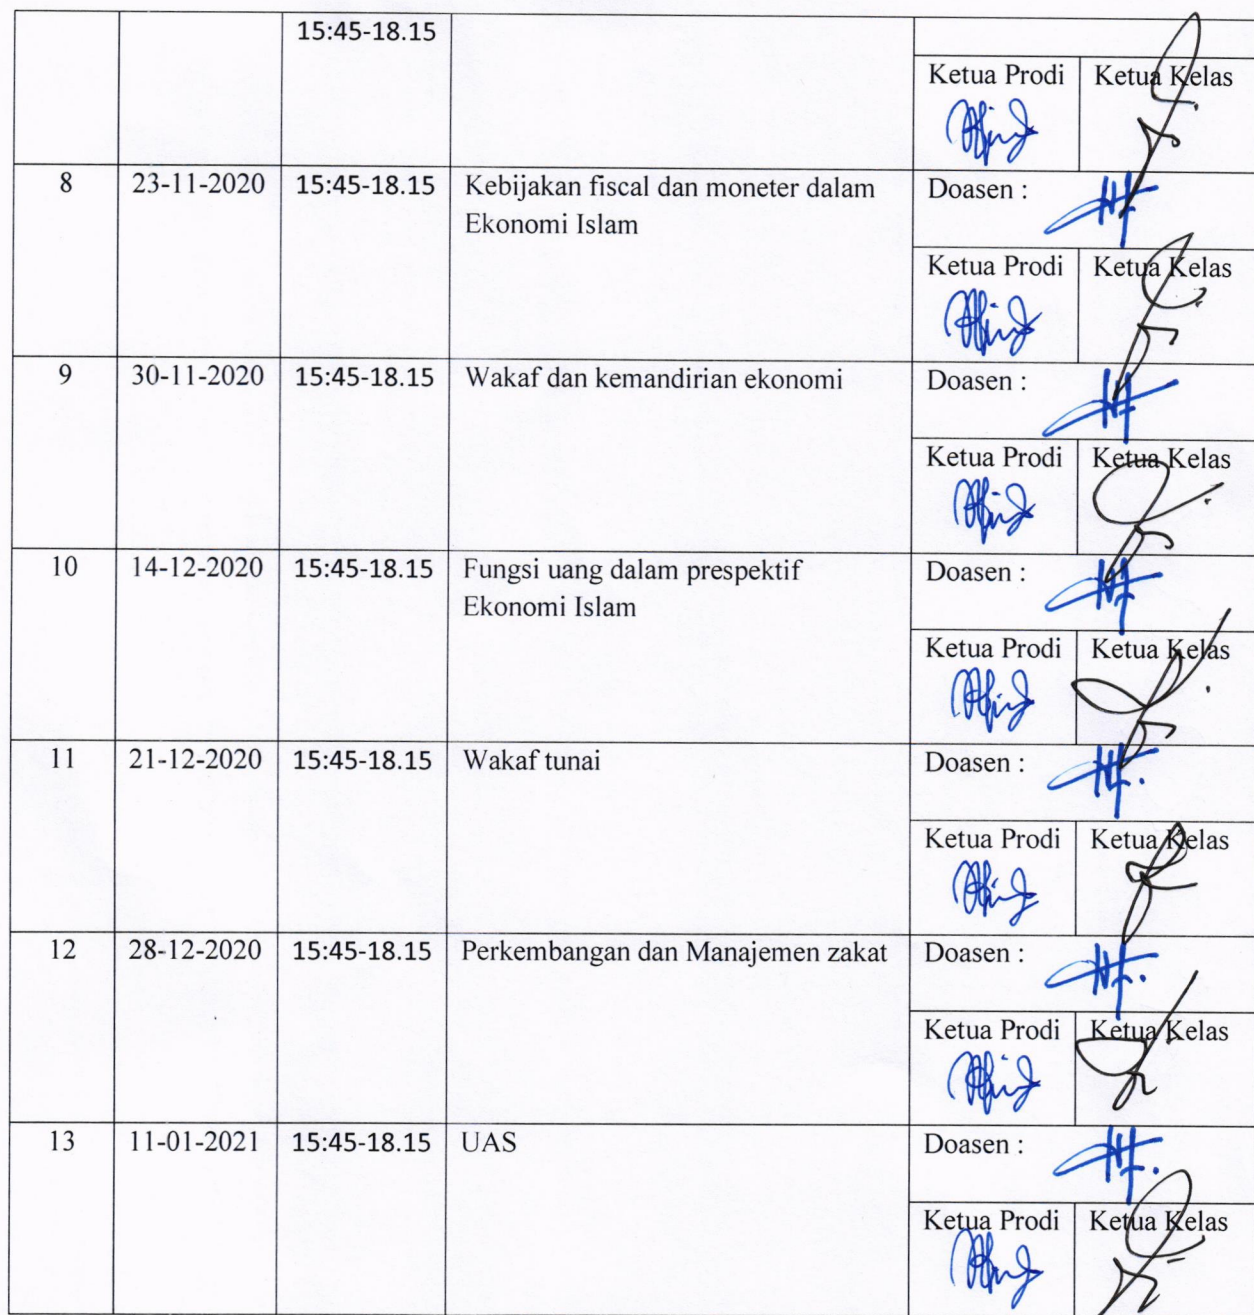 15:45-18.15
Ketua Prodi Ketua Kelas
8 23-11-2020 15:45-18.15 Kebijakan fiscal dan moneter dalam Doasen :
Ekonomi Islam
Ketua Prodi Ketua Kelas
9 30-11-2020 15:45-18.15 Wakaf dan kemandirian ekonomi Doasen :
Ketua Prodi Ketua Kelas
10 14-12-2020 15:45-18.15 Fungsi uang dalam prespektif Doasen :
Ekonomi Islam
Ketua Prodi Ketua Kelas
11 21-12-2020 15:45-18.15 Wakaf tunai Doasen :
Ketua Prodi Ketua Kelas
12 28-12-2020 15:45-18.15 Perkembangan dan Manajemen zakat Doasen :
Ketua Prodi Ketua Kelas
13 11-01-2021 15:45-18.15 UAS Doasen :
Ketua Prodi Ketua Kelas